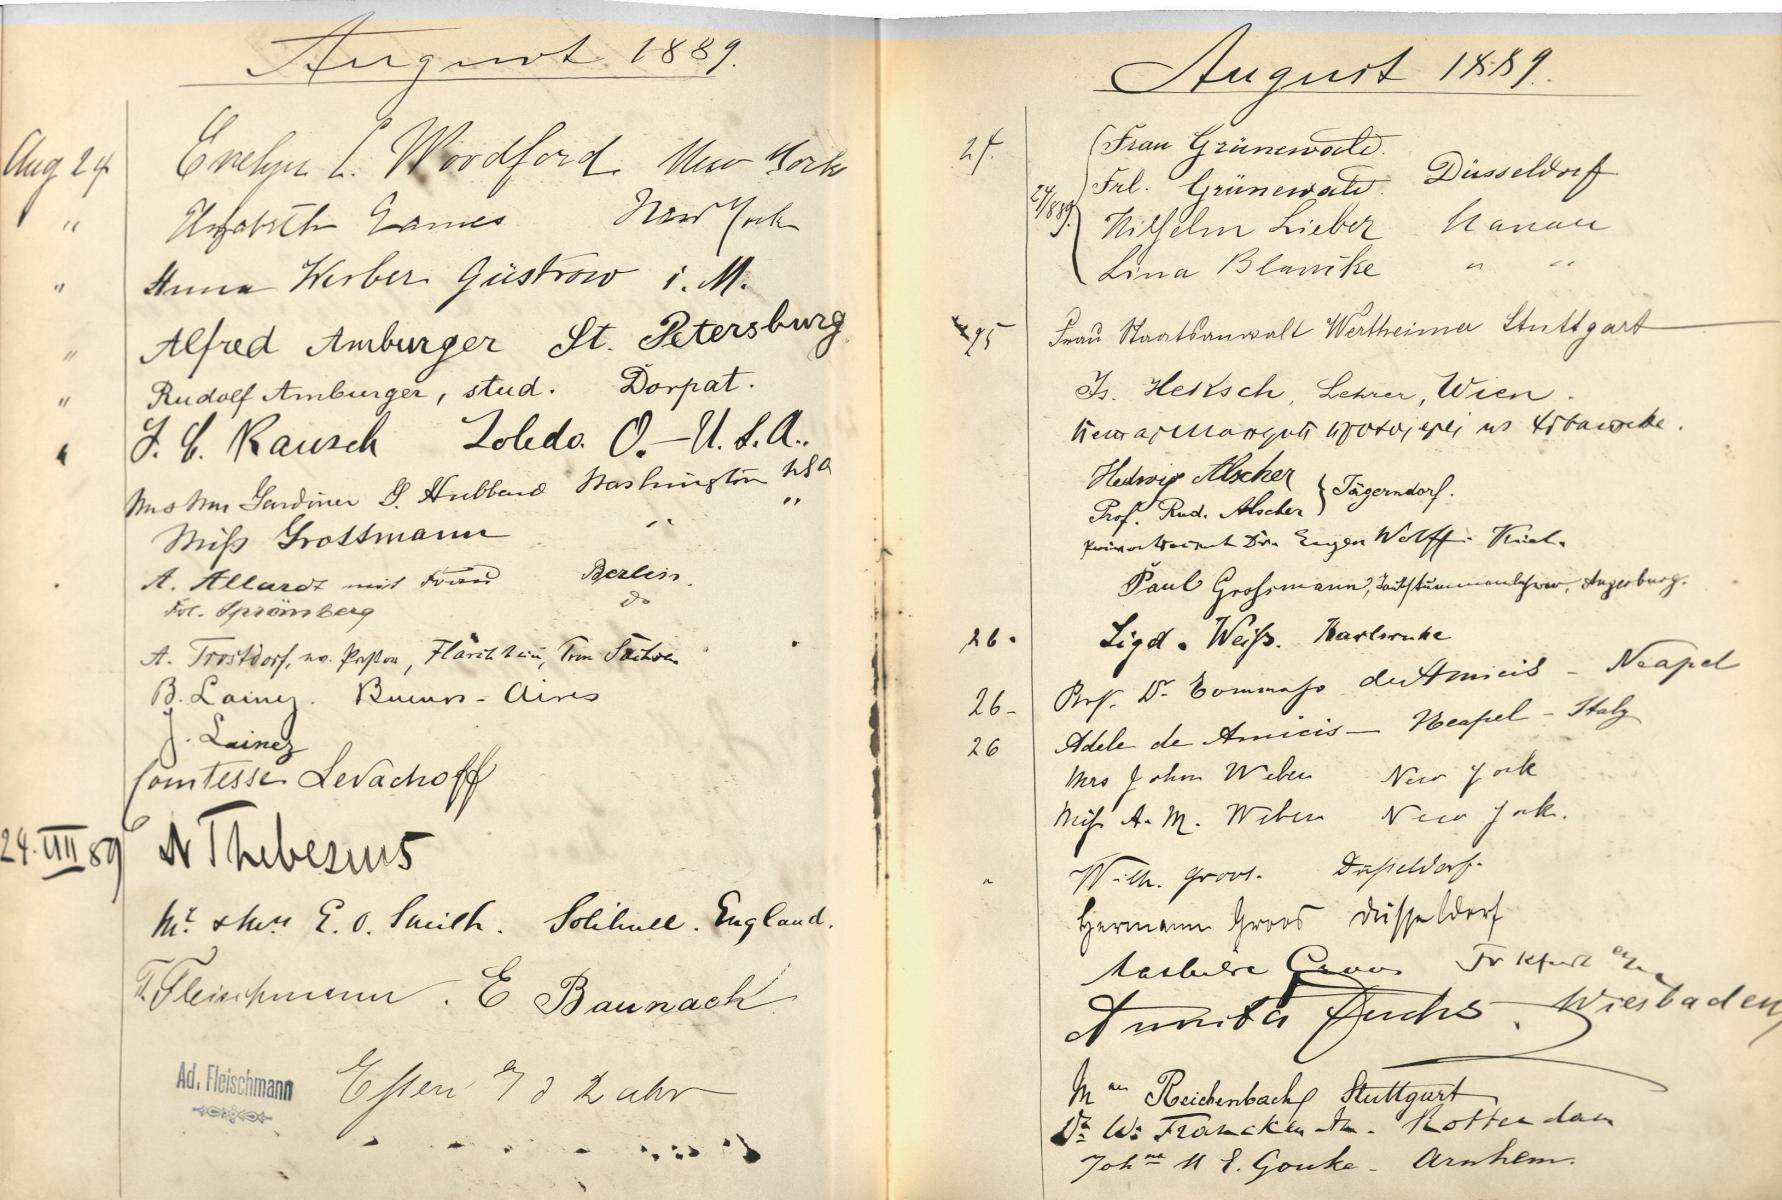 August 1889.
Aug 24 Evelyn L. Woodford New York
" Elizabeth Eames New York
" Anna Werber Güstrow i. M.
" Alfred Amburger St. Petersburg
" Rudolf Amburger, stud. Dorpat.
" J. C. Rausch Toledo. O.–U.S.A.
Gardiner G. Hubbard Washington USA
Miss Grossmann " "
A. Allardt mit Frau Berlin.
Frl. Sprömberg do
A. Trostdorf,
B. Lainez. Buenos-Aires
J. Lainez
Comtesse Levachoff
24. VIII 89 Thebesius
Mr & Mrs E. O. Smith. Solihull. England.
Fleischmann. E Baunach
Ad. Fleischmann
Essen 2 uhr
August 1889.
24. Frau Grünewald.
24/8 89. Frl. Grünewald. Düsseldorf
Wilhelm Lieber Hanau
Lina Blamke " "
25 Frau Staatsanwalt Wertheimer Stuttgart
Is. Heksch, Lehrer, Wien.
Hedwig Alscher
Prof. Rud. Alscher } Jägerndorf.
Eugen Wolff. Kiel.
Paul Grossmann, Taubstummenlehrer, Angerburg.
26. Sigd. Weiß. Karlsruhe
26- Prof. Dr. Tommaso de Amicis - Neapel
26 Adele de Amicis — Neapel - Italy
Mrs John Weber New York
Miss A. M. Weber New York.
" Wilh. Groos. Düsseldorf.
Hermann Groos Düsseldorf
Groos Frkfurt
Annita Fuchs. Wiesbaden
Reichenbach Stuttgart
Dr. W. Francken Rotterdam
Gouke - Arnhem.